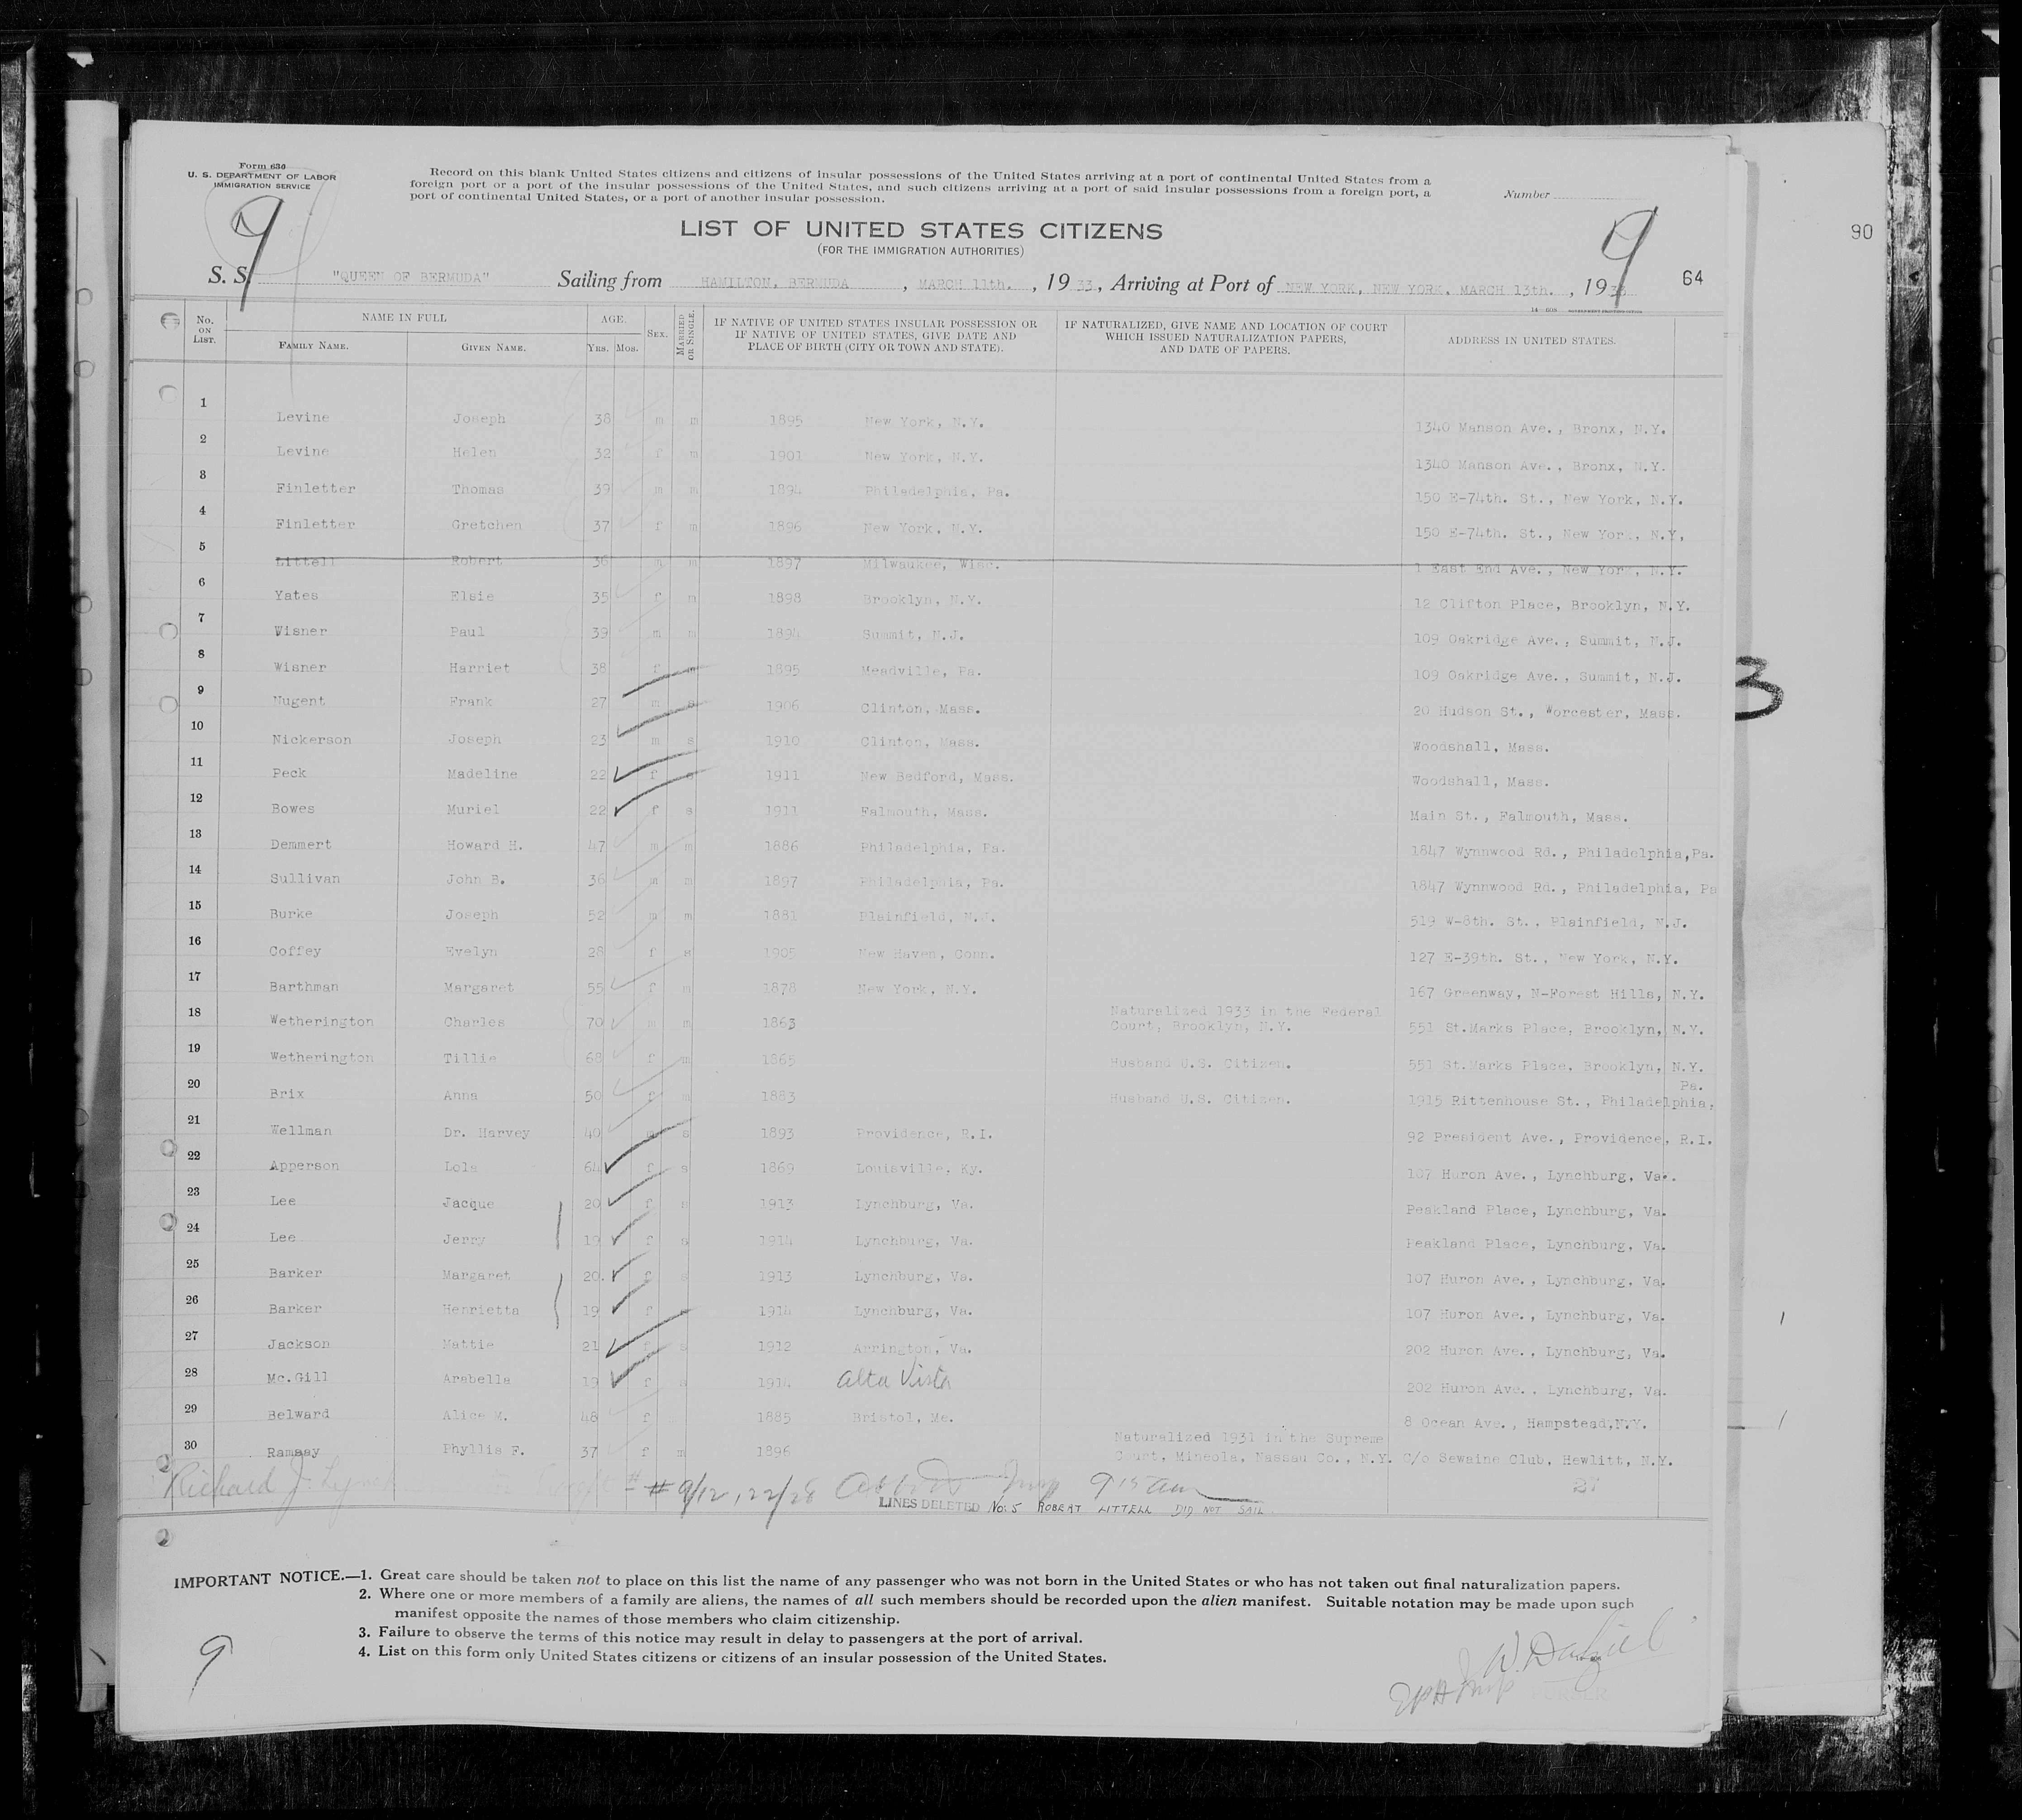 Form 630
U. S. DEPARTMENT OF LABOR
IMMIGRATION SERVICE
Record on this blank United States citizens and citizens of insular possessions of the United States arriving at a port of continental United States from a
foreign port or a port of the insular possessions of the United States, and such citizens arriving at a port of said insular possessions from a foreign port, a
port of continental United States, or a port of another insular possession.
Number
9 9
90
LIST OF UNITED STATES CITIZENS
(FOR THE IMMIGRATION AUTHORITIES)
S. S. "QUEEN OF BERMUDA" Sailing from HAMILTON, BERMUDA , MARCH 11th. , 1933, Arriving at Port of NEW YORK, NEW YORK, MARCH 13th. , 1933 64
No. ON LIST. NAME IN FULL FAMILY NAME. GIVEN NAME. AGE. YRS. MOS. SEX. MARRIED OR SINGLE. IF NATIVE OF UNITED STATES INSULAR POSSESSION OR IF NATIVE OF UNITED STATES, GIVE DATE AND PLACE OF BIRTH (CITY OR TOWN AND STATE). IF NATURALIZED, GIVE NAME AND LOCATION OF COURT WHICH ISSUED NATURALIZATION PAPERS, AND DATE OF PAPERS. ADDRESS IN UNITED STATES.
1 Levine Joseph 38 m m 1895 New York, N.Y. 1340 Manson Ave., Bronx, N.Y.
2 Levine Helen 32 f m 1901 New York, N.Y. 1340 Manson Ave., Bronx, N.Y.
3 Finletter Thomas 39 m m 1894 Philadelphia, Pa. 150 E-74th. St., New York, N.Y.
4 Finletter Gretchen 37 f m 1896 New York, N.Y. 150 E-74th. St., New York, N.Y,
5 Littell Robert 36 m m 1897 Milwaukee, Wisc. 1 East End Ave., New York, N.Y.
6 Yates Elsie 35 f m 1898 Brooklyn, N.Y. 12 Clifton Place, Brooklyn, N.Y.
7 Wisner Paul 39 m m 1894 Summit, N.J. 109 Oakridge Ave., Summit, N.J.
8 Wisner Harriet 38 f m 1895 Meadville, Pa. 109 Oakridge Ave., Summit, N.J.
9 Nugent Frank 27 m s 1906 Clinton, Mass. 20 Hudson St., Worcester, Mass.
10 Nickerson Joseph 23 m s 1910 Clinton, Mass. Woodshall, Mass.
11 Peck Madeline 22 f s 1911 New Bedford, Mass. Woodshall, Mass.
12 Bowes Muriel 22 f s 1911 Falmouth, Mass. Main St., Falmouth, Mass.
13 Demmert Howard H. 47 m m 1886 Philadelphia, Pa. 1847 Wynnwood Rd., Philadelphia,Pa.
14 Sullivan John B. 36 m m 1897 Philadelphia, Pa. 1847 Wynnwood Rd., Philadelphia, Pa
15 Burke Joseph 52 m m 1881 Plainfield, N.J. 519 W-8th. St., Plainfield, N.J.
16 Coffey Evelyn 28 f s 1905 New Haven, Conn. 127 E-39th. St., New York, N.Y.
17 Barthman Margaret 55 f m 1878 New York, N.Y. 167 Greenway, N-Forest Hills, N.Y.
18 Wetherington Charles 70 m m 1863 Naturalized 1933 in the Federal Court, Brooklyn, N.Y. 551 St.Marks Place, Brooklyn, N.Y.
19 Wetherington Tillie 68 f m 1865 Husband U.S. Citizen. 551 St.Marks Place, Brooklyn, N.Y.
20 Brix Anna 50 f m 1883 Husband U.S. Citizen. 1915 Rittenhouse St., Philadelphia, Pa.
21 Wellman Dr. Harvey 40 m s 1893 Providence, R.I. 92 President Ave., Providence, R.I.
22 Apperson Lola 64 f s 1869 Louisville, Ky. 107 Huron Ave., Lynchburg, Va.
23 Lee Jacque 20 f s 1913 Lynchburg, Va. Peakland Place, Lynchburg, Va.
24 Lee Jerry 19 f s 1914 Lynchburg, Va. Peakland Place, Lynchburg, Va.
25 Barker Margaret 20. f s 1913 Lynchburg, Va. 107 Huron Ave., Lynchburg. Va.
26 Barker Henrietta 19 f s 1914 Lynchburg, Va. 107 Huron Ave., Lynchburg, Va.
27 Jackson Mattie 21 f s 1912 Arrington, Va. 202 Huron Ave., Lynchburg, Va.
28 Mc.Gill Arabella 19 f s 1914 Alta Vista 202 Huron Ave., Lynchburg, Va.
29 Belward Alice M. 48 f 1885 Bristol, Me. 8 Ocean Ave., Hampstead,N.Y.
30 Ramsay Phyllis F. 37 f m 1896 Naturalized 1931 in the Supreme Court, Mineola, Nassau Co., N.Y. C/o Sewaine Club, Hewlitt, N.Y.
Richard J. Lynch # # 9/12, 22/28 9 15 am
LINES DELETED No: 5 ROBERT LITTELL DID NOT SAIL.
IMPORTANT NOTICE.—1. Great care should be taken not to place on this list the name of any passenger who was not born in the United States or who has not taken out final naturalization papers.
2. Where one or more members of a family are aliens, the names of all such members should be recorded upon the alien manifest. Suitable notation may be made upon such
manifest opposite the names of those members who claim citizenship.
3. Failure to observe the terms of this notice may result in delay to passengers at the port of arrival.
4. List on this form only United States citizens or citizens of an insular possession of the United States.
9
W. Daniel
PURSER
3